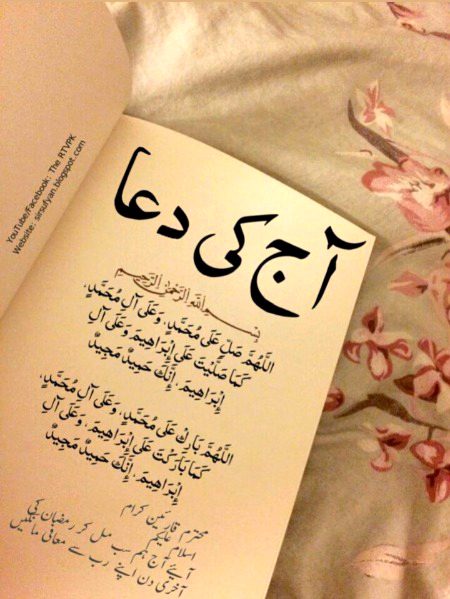 YouTube/Facebook: The RTVPK
Website: sirsufyan.blogspot.com
آج کی دعا
بسم الله الرحمن الرحيم
اللَّهُمَّ صَلِّ عَلَى مُحَمَّدٍ، وَعَلَى آلِ مُحَمَّدٍ،
كَمَا صَلَّيْتَ عَلَى إِبْرَاهِيمَ وَعَلَى آلِ
إِبْرَاهِيمَ، إِنَّكَ حَمِيدٌ مَجِيدٌ
اللَّهُمَّ بَارِكْ عَلَى مُحَمَّدٍ، وَعَلَى آلِ مُحَمَّدٍ،
كَمَا بَارَكْتَ عَلَى إِبْرَاهِيمَ، وَعَلَى آلِ
إِبْرَاهِيمَ، إِنَّكَ حَمِيدٌ مَجِيدٌ
محترم قارئین کرام
اسلام علیکم
آیئے آج ہم سب مل کر رمضان کی
آخری دن اپنے رب سے معافی مانگیں